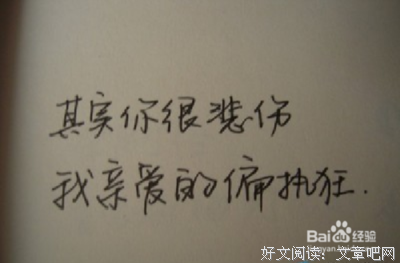 其实你很悲伤
我亲爱的偏执狂.
Baidu经验
好文阅读：文章吧网